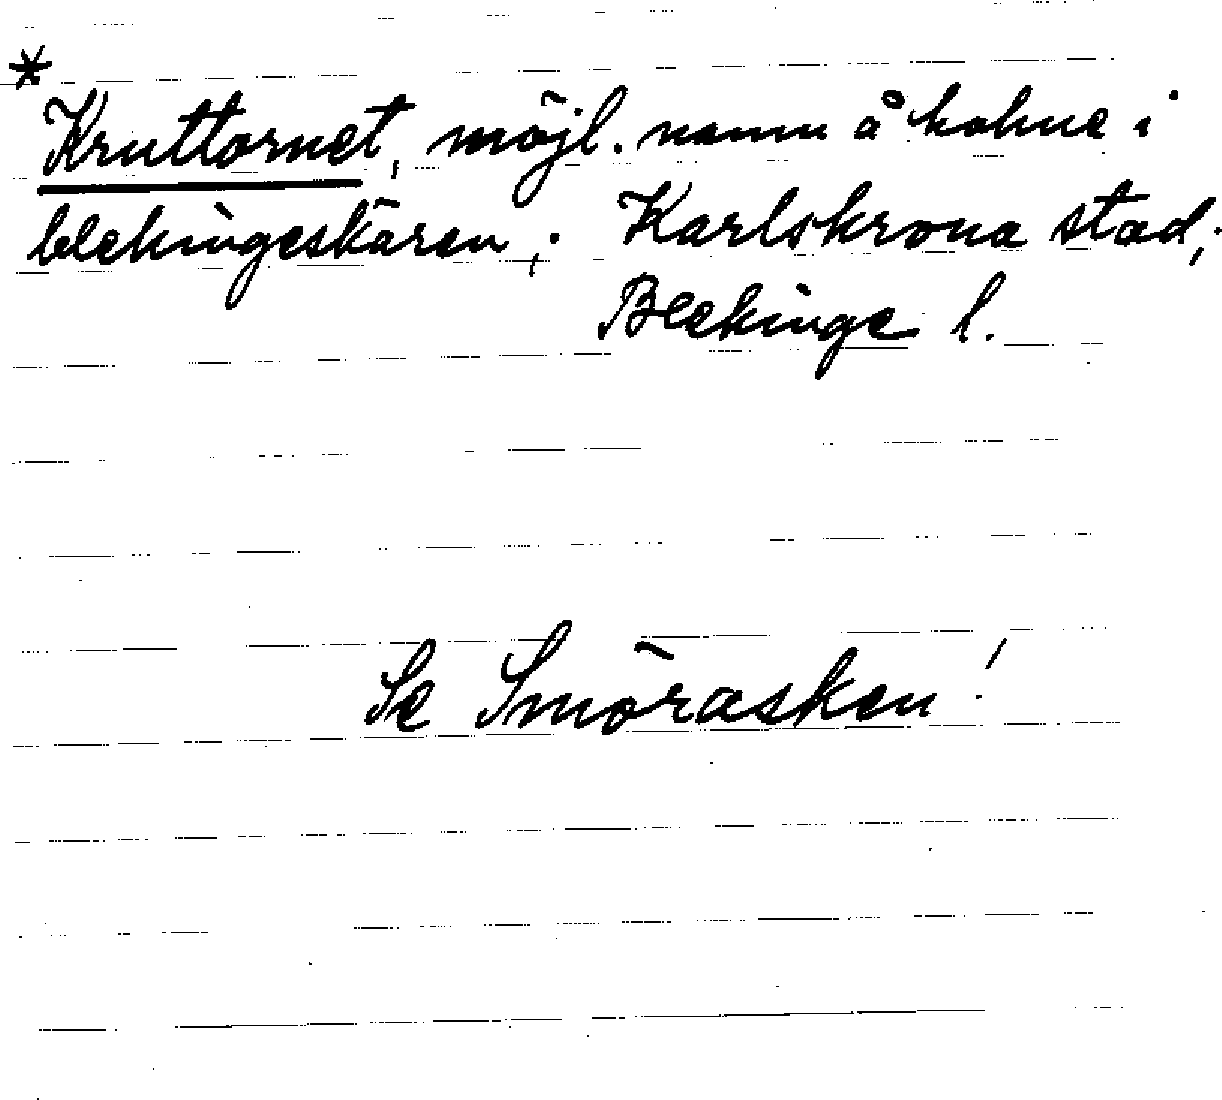 *
Kruttornet, möjl. namn å holme i
blekingeskären; Karlskrona stad;
Blekinge l.
Se Smörasken!